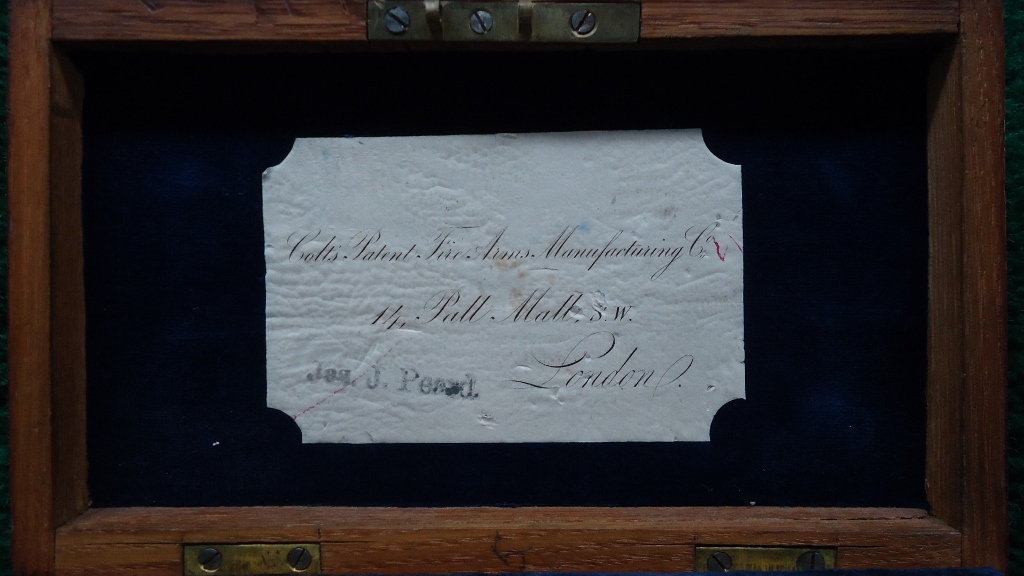 Colt's Patent Fire Arms Manufacturing Co.
14, Pall Mall, S.W.
London.
Jas. J. Peard.